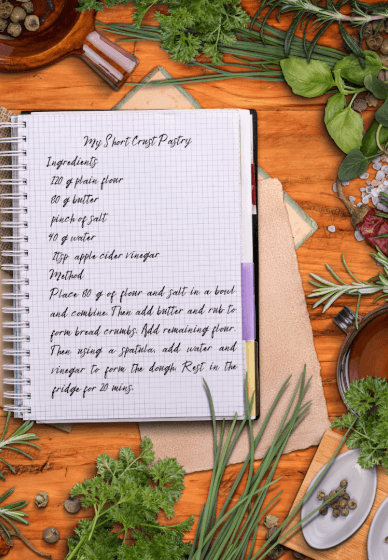 My Short Crust Pastry
Ingredients
120 g plain flour
80 g butter
pinch of salt
40 g water
1tsp. apple cider vinegar
Method
Place 80 g of flour and salt in a bowl
and combine. Then add butter and rub to
form bread crumbs. Add remaining flour.
Then using a spatula, add water and
vinegar to form the dough. Rest in the
fridge for 20 mins.